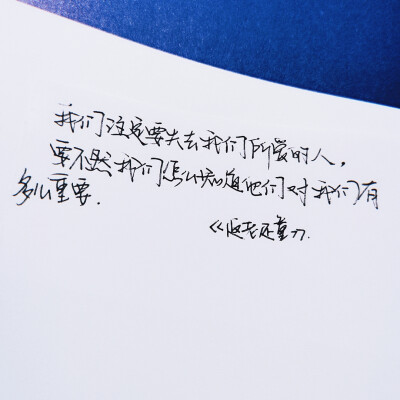 我们注定要失去我们所爱的人，
要不然我们怎么知道他们对我们有
多么重要.
《返老还童》.